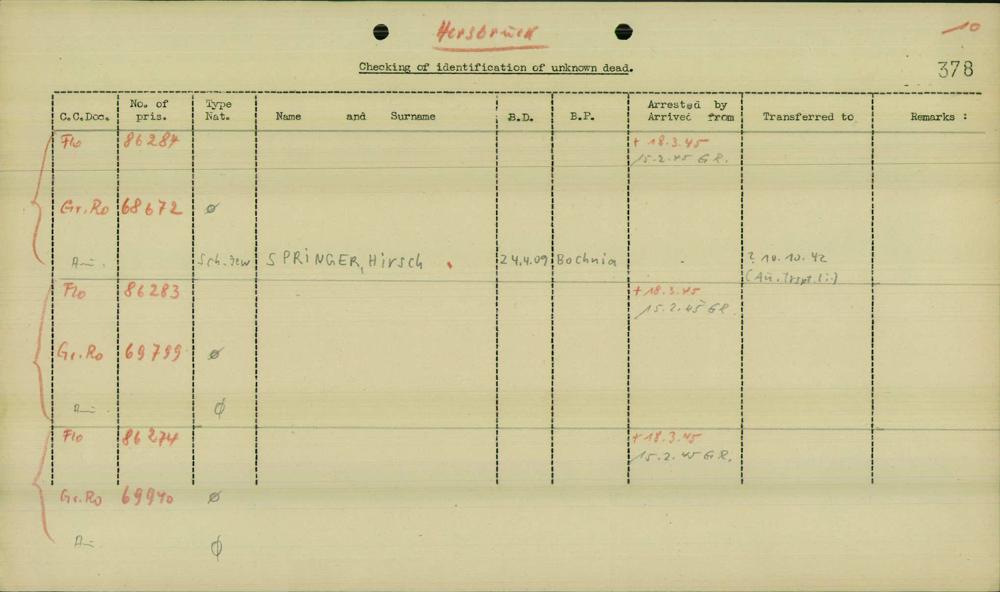 Hersbruck
10
Checking of identification of unknown dead.
378
C.C.Doc. No. of pris. Type Nat. Name and Surname B.D. B.P. Arrested by Arrived from Transferred to Remarks :
Flo 86284 + 18.3.45
15.2.45 GR.
Gr.Ro 68672 ø
Au. Sch.Jew SPRINGER, Hirsch 24.4.09 Bochnia ? 10.10.42
Flo 86283 + 18.3.45
15.2.45 GR.
Gr.Ro 69799 ø
Au. ø
Flo 86274 + 18.3.45
15.2.45 GR.
Gr.Ro 69940 ø
Au. ø